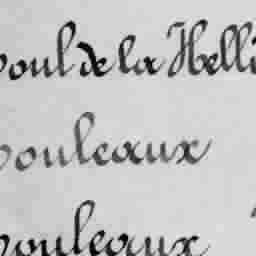 oul de la Helli
ouleaux
ouleaux